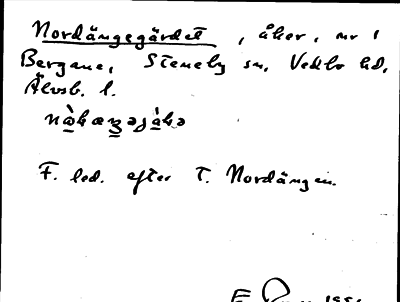 Nordängegärdet, åker, nr 1
Bergane, Steneby sn, Vedbo hd,
Älvsb. l.
F. led. efter T. Nordängen.